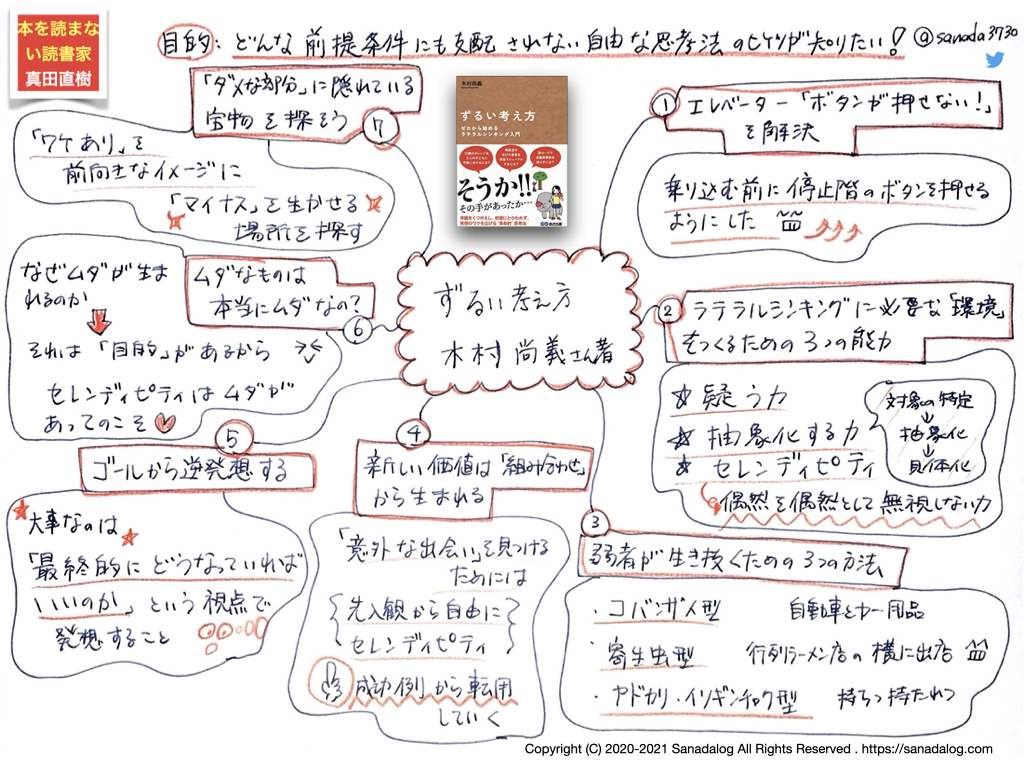 本を読まな
い読書家
真田直樹
目的: どんな前提条件にも支配されない自由な思考法のヒケツが知りたい!
@sanada3730
① エレベーター「ボタンが押せない!」
を解決
乗り込む前に停止階のボタンを押せる
ようにした
② ラテラルシンキングに必要な「環境」
をつくるための3つの能力
☆ 疑う力
☆ 抽象化する力
★ セレンディピティ
偶然を偶然として無視しない力
対象の特定
↓
抽象化
↓
具体化
③
弱者が生き抜くための3つの方法
・コバンザメ型 自動車とカー用品
・寄生虫型 行列ラーメン店の横に出店
・ヤドカリ・イソギンチャク型 持ちつ持たれつ
④
新しい価値は「組み合わせ」
から生まれる
「意外な出会い」を見つける
ためには
先入観から自由に
セレンディピティ
成功例から転用
していく
⑤
ゴールから逆発想する
大事なのは
「最終的にどうなっていれば
いいのか」という視点で
発想すること
⑥
ムダなものは
本当にムダなの?
なぜムダが生ま
れるのか
それは「目的」があるから
セレンディピティはムダが
あってのこそ
⑦
「ダメな部分」に隠れている
宝物を探そう
「ワケあり」を
前向きなイメージに
「マイナス」を生かせる
場所を探す
ずるい考え方
木村尚義さん著
木村尚義
ずるい考え方
ゼロから始める
ラテラルシンキング入門
そうか!!
その手があったか…
Copyright (C) 2020-2021 Sanadalog All Rights Reserved . https://sanadalog.com